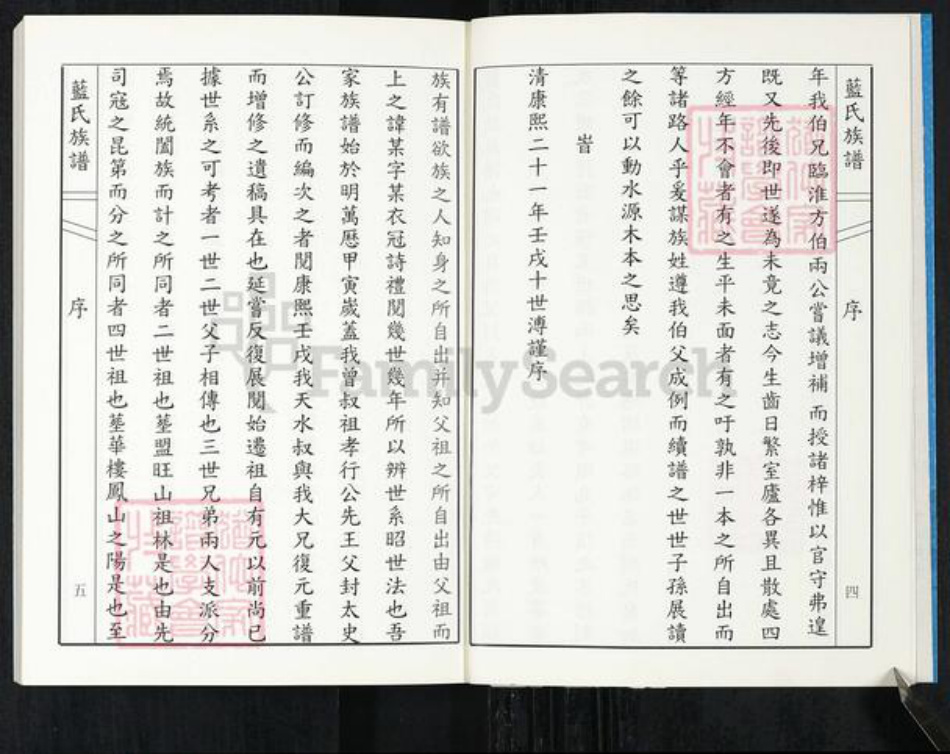 藍氏族譜
序
四
年我伯兄臨淮方伯兩公嘗議增補而授諸梓惟以官守弗遑
既又先後即世遂為未竟之志今生齒日繁室廬各異且散處四
方經年不會者有之生平未面者有之吁孰非一本之所自出而
等諸路人乎爰謀族姓遵我伯父成例而續譜之世世子孫展讀
之餘可以動水源木本之思矣
旹
清康熙二十一年壬戌十世溥謹序
族有譜欲族之人知身之所自出并知父祖之所自出由父祖而
上之諱某字某衣冠詩禮閱幾世幾年所以辨世系昭世法也吾
家族譜始於明萬曆甲寅歲蓋我曾叔祖孝行公先王父封太史
公訂修而編次之者閱康熙壬戌我天水叔與我大兄復元重譜
而增修之遺稿具在也延嘗反復展閱始遷祖自有元以前尚已
據世系之可考者一世二世父子相傳也三世兄弟兩人支派分
焉故統闔族而計之所同者二世祖也塟盟旺山祖林是也由先
司寇之昆弟而分之所同者四世祖也塟華樓鳳山之陽是也至
藍氏族譜
序
五
FamilySearch